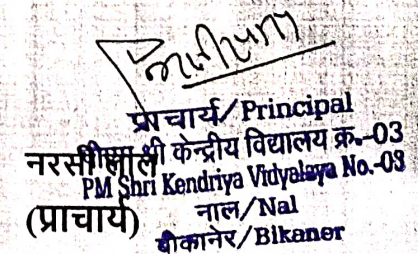 प्राचार्य/Principal
श्री केन्द्रीय विद्यालय क्र.-03
नरसी लाल
PM Shri Kendriya Vidyalaya No.-03
(प्राचार्य)
नाल/Nal
बीकानेर/Bikaner